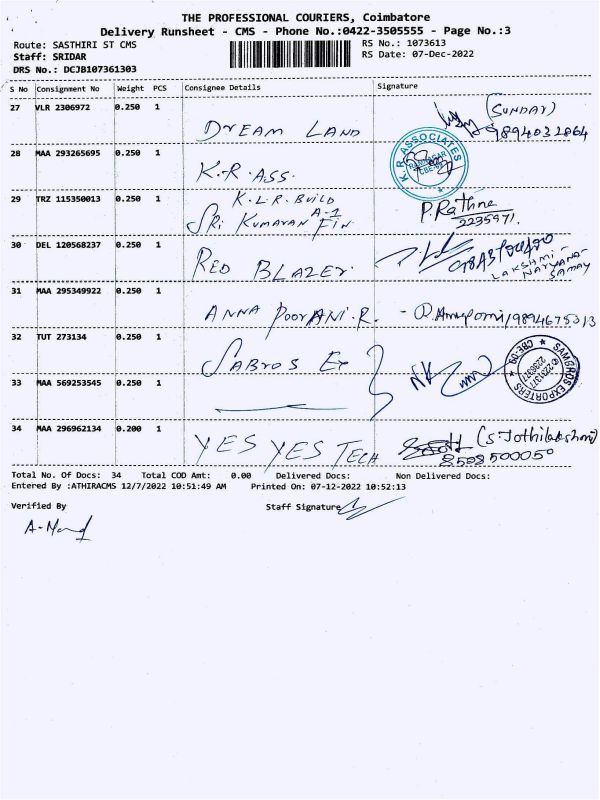 THE PROFESSIONAL COURIERS, Coimbatore
Delivery Runsheet - CMS - Phone No.:0422-3505555 - Page No.:3
Route: SASTHIRI ST CMS
RS No.: 1073613
Staff: SRIDAR
RS Date: 07-Dec-2022
DRS No.: DCJB107361303
S No Consignment No Weight PCS Consignee Details Signature
27 VLR 2306972 0.250 1
DREAM LAND
(SUNDAY)
9894032864
28 MAA 293265695 0.250 1
K.R. ASS.
K.R. ASSOCIATES
29 TRZ 115350013 0.250 1
K.L.R. BUILD
SRI KUMARAN A-1 FIN
P. Rathna
2235971.
30 DEL 120568237 0.250 1
RED BLAZER
LAKSHMI-
NARYANA-
SAMAY
31 MAA 295349922 0.250 1
ANNA POORANI. R.
32 TUT 273134 0.250 1
SABROS EX
SAMBROS EXPORTERS CBE-09
33 MAA 569253545 0.250 1
34 MAA 296962134 0.200 1
YES YES TECH
(S. Jothilakshmi)
8508500050
Total No. Of Docs: 34 Total COD Amt: 0.00 Delivered Docs: Non Delivered Docs:
Entered By :ATHIRACMS 12/7/2022 10:51:49 AM Printed On: 07-12-2022 10:52:13
Verified By Staff Signature